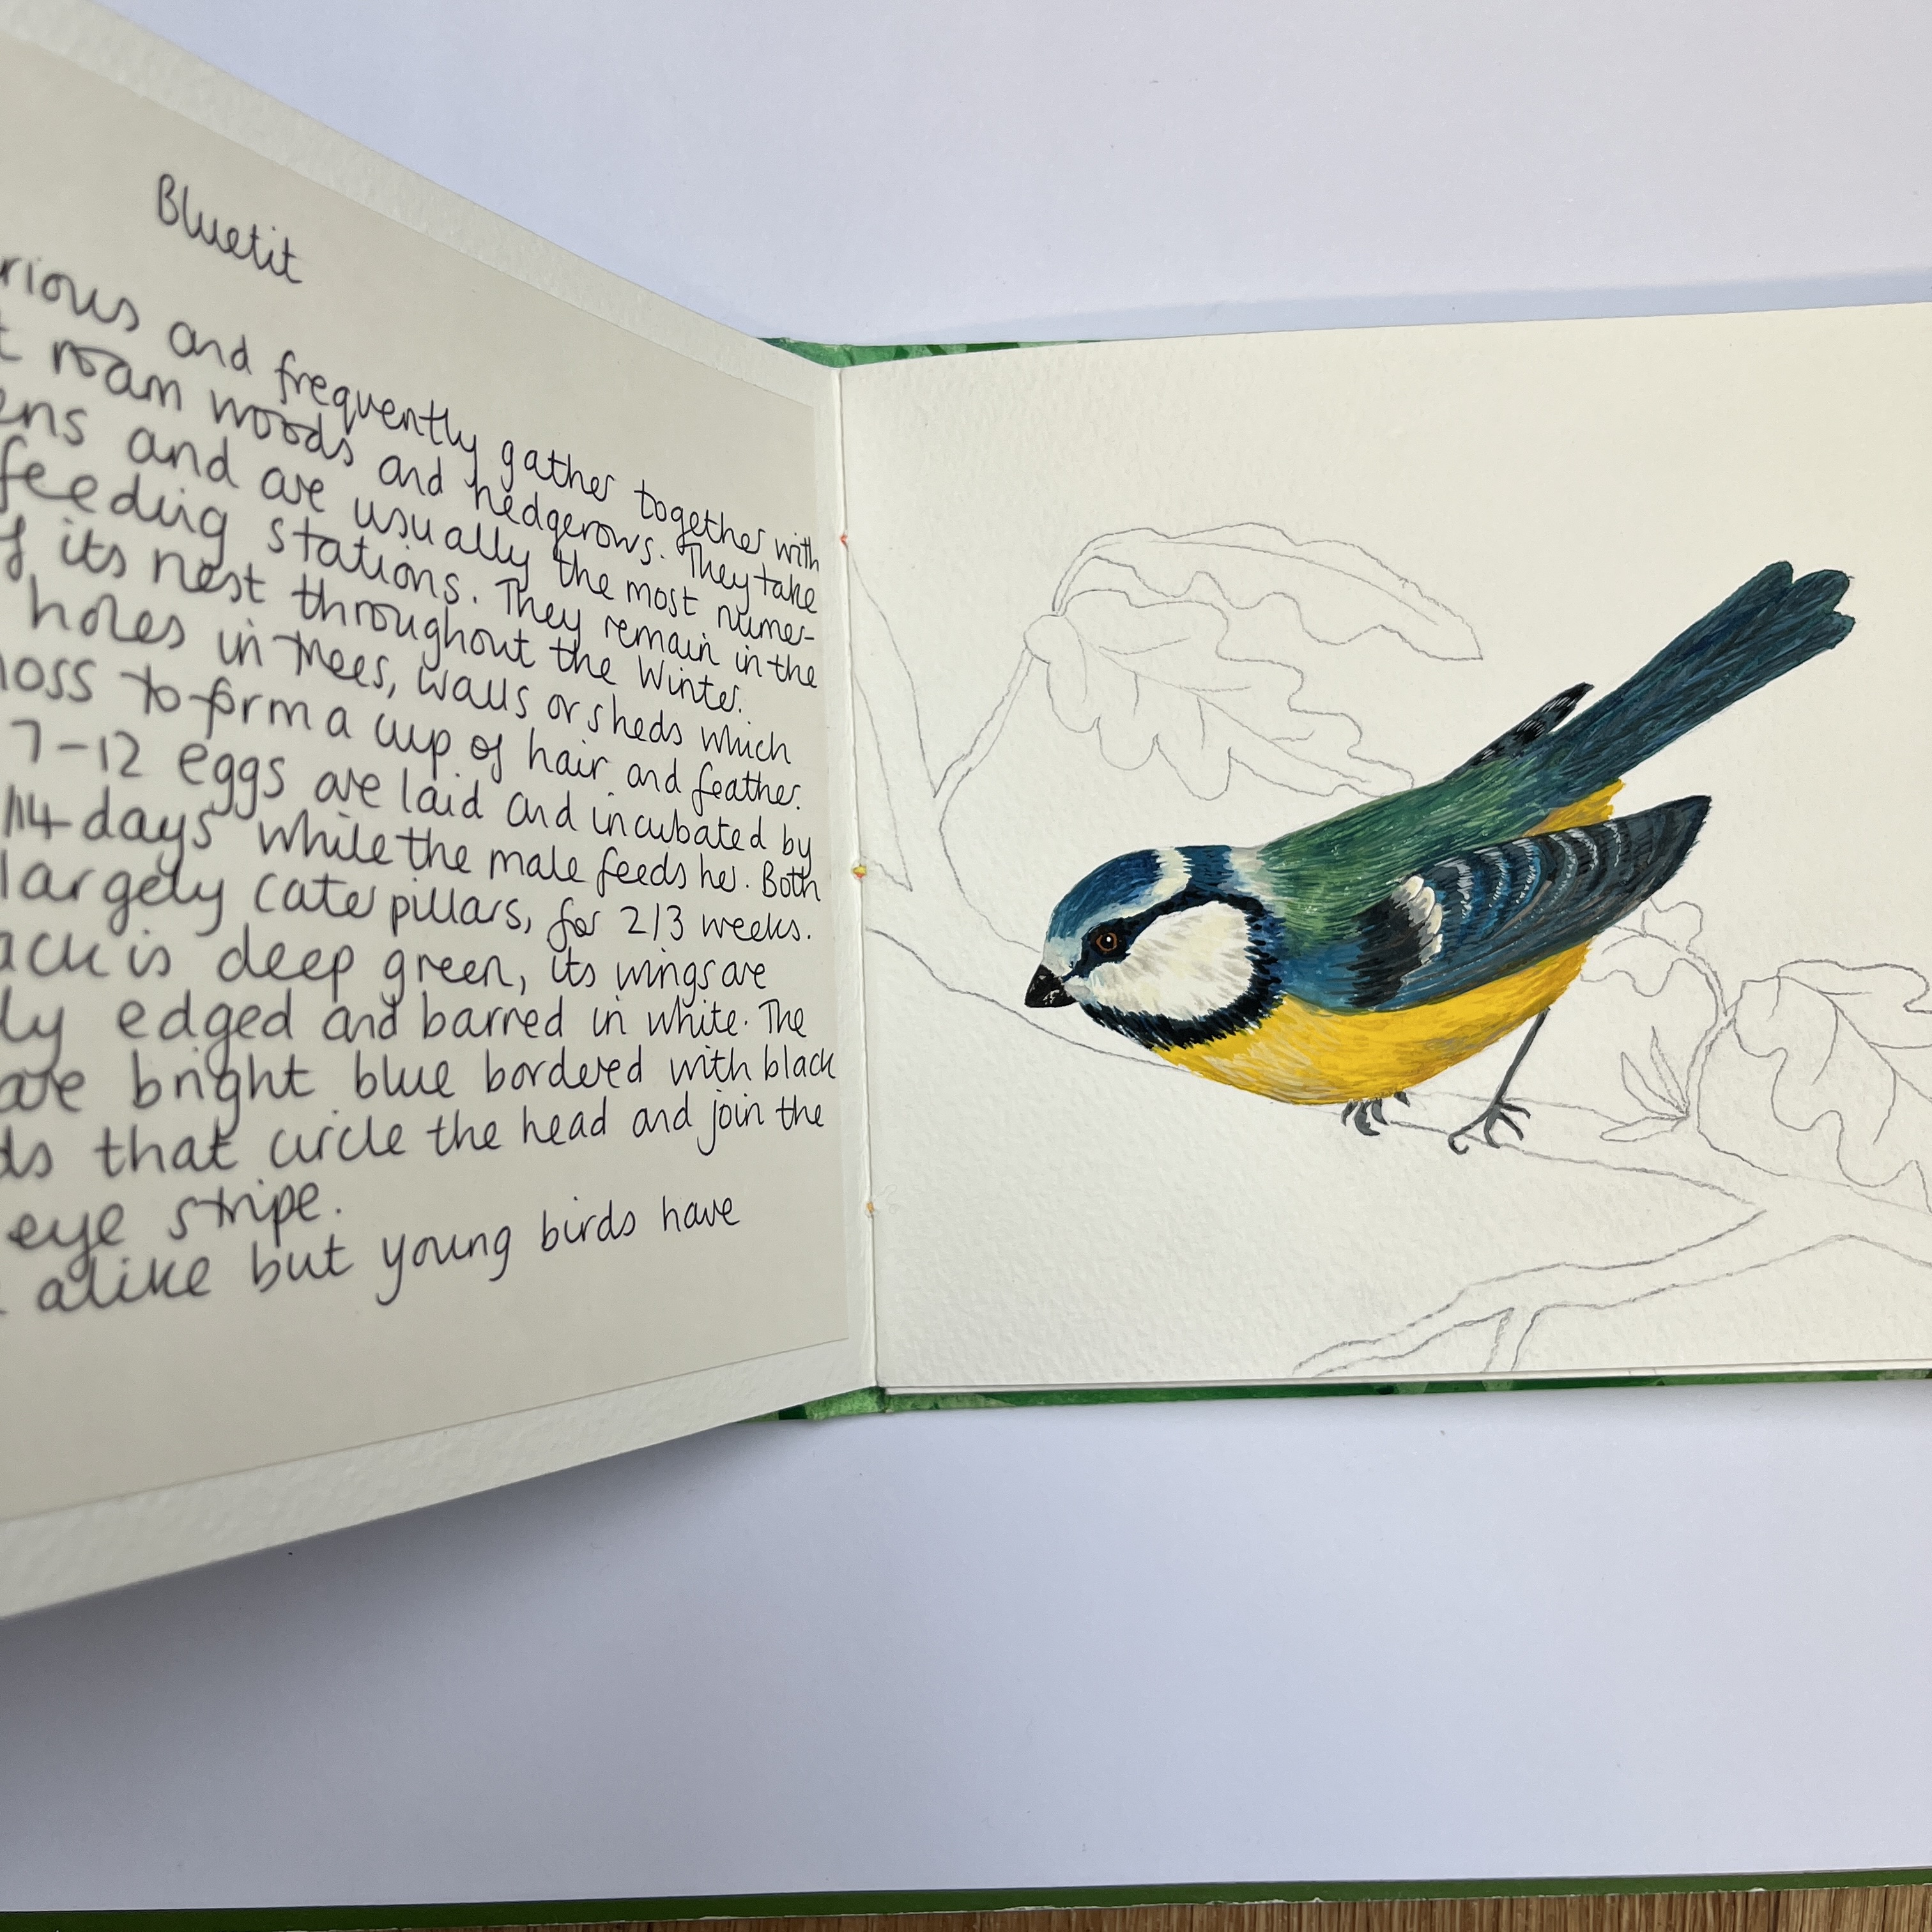 Bluetit
rious and frequently gather together with
t roam woods and hedgerows. They take
ens and are usually the most numer-
feeding stations. They remain in the
f its nest throughout the Winter.
holes in trees, walls or sheds which
oss to form a cup of hair and feather.
7-12 eggs are laid and incubated by
14 days while the male feeds her. Both
largely caterpillars, for 2/3 weeks.
ack is deep green, its wings are
ly edged and barred in white. The
are bright blue bordered with black
ds that circle the head and join the
eye stripe.
alike but young birds have